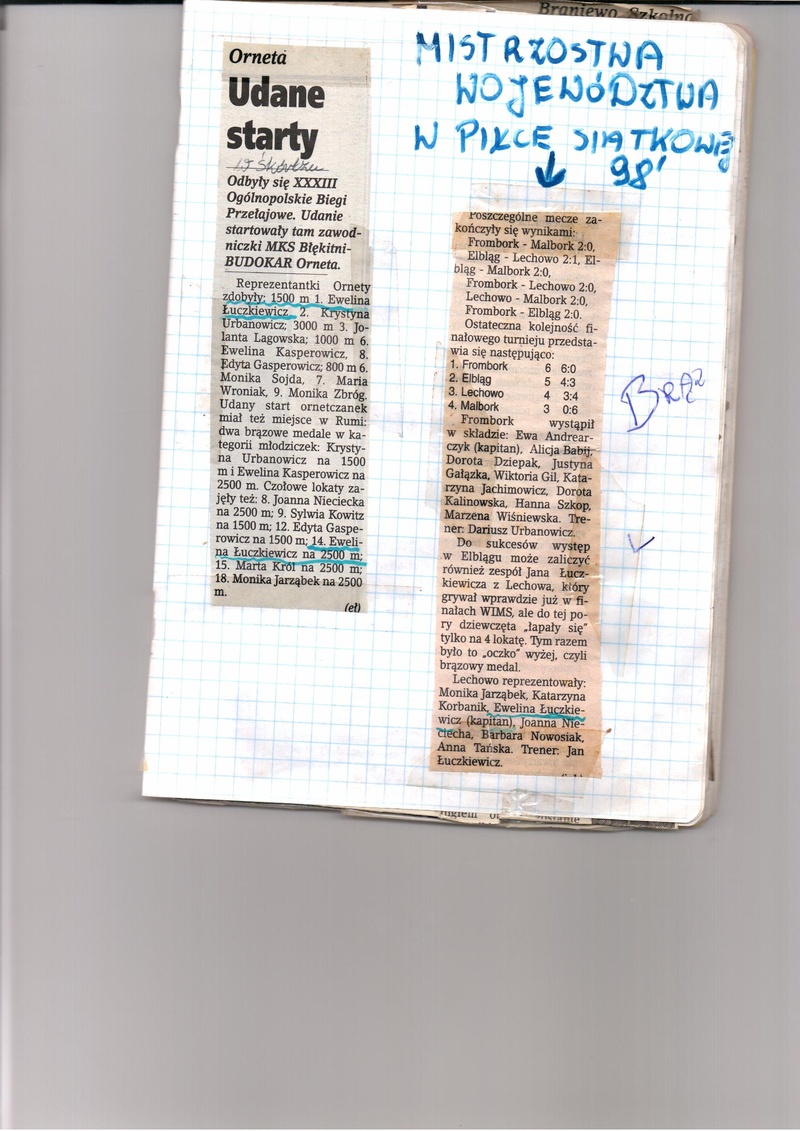 Braniewo Szkolna
Orneta
Udane
starty
w Skórczu
Odbyły się XXXIII
Ogólnopolskie Biegi
Przełajowe. Udanie
startowały tam zawod-
niczki MKS Błękitni-
BUDOKAR Orneta.
Reprezentantki Ornety
zdobyły: 1500 m 1. Ewelina
Łuczkiewicz 2. Krystyna
Urbanowicz; 3000 m 3. Jo-
lanta Lagowska; 1000 m 6.
Ewelina Kasperowicz, 8.
Edyta Gasperowicz; 800 m 6.
Monika Sojda, 7. Maria
Wroniak, 9. Monika Zbróg.
Udany start ornetczanek
miał też miejsce w Rumi:
dwa brązowe medale w ka-
tegorii młodziczek: Krysty-
na Urbanowicz na 1500
m i Ewelina Kasperowicz na
2500 m. Czołowe lokaty za-
jęły też: 8. Joanna Nieciecka
na 2500 m; 9. Sylwia Kowitz
na 1500 m; 12. Edyta Gaspe-
rowicz na 1500 m; 14. Eweli-
na Łuczkiewicz na 2500 m;
15. Marta Król na 2500 m;
18. Monika Jarząbek na 2500
m.
(el)
MISTRZOSTWA
WOJEWÓDZTWA
W PIŁCE SIATKOWEJ
98'
Poszczególne mecze za-
kończyły się wynikami:
Frombork - Malbork 2:0,
Elbląg - Lechowo 2:1, El-
bląg - Malbork 2:0,
Frombork - Lechowo 2:0,
Lechowo - Malbork 2:0,
Frombork - Elbląg 2:0.
Ostateczna kolejność fi-
nałowego turnieju przedsta-
wia się następująco:
1. Frombork 6 6:0
2. Elbląg 5 4:3
3. Lechowo 4 3:4
4. Malbork 3 0:6
Frombork wystąpił
w składzie: Ewa Andrear-
czyk (kapitan), Alicja Babij,
Dorota Dziepak, Justyna
Gałązka, Wiktoria Gil, Kata-
rzyna Jachimowicz, Dorota
Kalinowska, Hanna Szkop,
Marzena Wiśniewska. Tre-
ner: Dariusz Urbanowicz.
Do sukcesów występ
w Elblągu może zaliczyć
również zespół Jana Łucz-
kiewicza z Lechowa, który
grywał wprawdzie już w fi-
nałach WIMS, ale do tej po-
ry dziewczęta „łapały się"
tylko na 4 lokatę. Tym razem
było to „oczko" wyżej, czyli
brązowy medal.
Lechowo reprezentowały:
Monika Jarząbek, Katarzyna
Korbanik, Ewelina Łuczkie-
wicz (kapitan), Joanna Nie-
ciecha, Barbara Nowosiak,
Anna Tańska. Trener: Jan
Łuczkiewicz.
BRĄZ